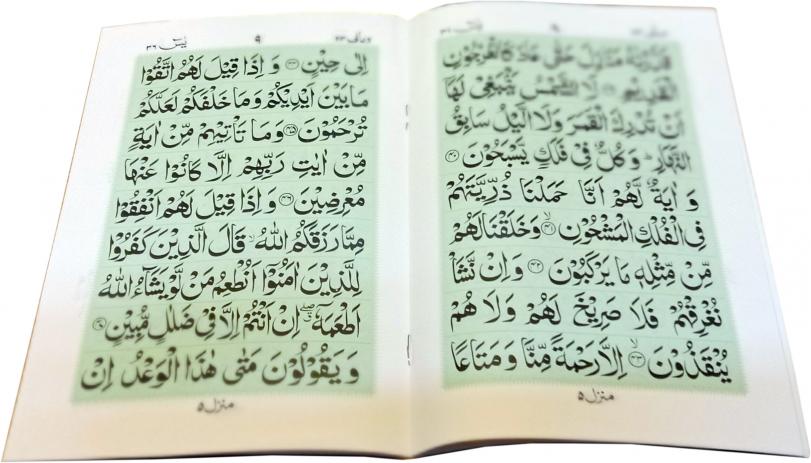 قَدَّرْنٰهُ مَنَازِلَ حَتّٰى عَادَ كَالْعُرْجُوْنِ
الْقَدِيْمِ لَا الشَّمْسُ يَنْۢبَغِىْ لَهَاۤ
اَنْ تُدْرِكَ الْقَمَرَ وَلَا الَّيْلُ سَابِقُ
النَّهَارِ ؕ وَكُلٌّ فِىْ فَلَكٍ يَّسْبَحُوْنَ ﴿۴۰﴾
وَ اٰيَةٌ لَّهُمْ اَنَّا حَمَلْنَا ذُرِّيَّتَهُمْ
فِى الْفُلْكِ الْمَشْحُوْنِ ﴿۴۱﴾ وَخَلَقْنَا لَهُمْ
مِّنْ مِّثْلِهٖ مَا يَرْكَبُوْنَ ﴿۴۲﴾ وَاِنْ نَّشَاْ
نُغْرِقْهُمْ فَلَا صَرِيْخَ لَهُمْ وَلَا هُمْ
يُنْقَذُوْنَ ﴿۴۳﴾ اِلَّا رَحْمَةً مِّنَّا وَمَتَاعًا
منزل ۵
یٰسٓ ۳۶ ۹ ومالی ۲۳
اِلٰى حِيْنٍ ﴿۴۴﴾ وَ اِذَا قِيْلَ لَهُمُ اتَّقُوْا
مَا بَيْنَ اَيْدِيْكُمْ وَمَا خَلْفَكُمْ لَعَلَّكُمْ
تُرْحَمُوْنَ ﴿۴۵﴾ وَمَا تَاْتِيْهِمْ مِّنْ اٰيَةٍ
مِّنْ اٰيٰتِ رَبِّهِمْ اِلَّا كَانُوْا عَنْهَا
مُعْرِضِيْنَ ﴿۴۶﴾ وَ اِذَا قِيْلَ لَهُمْ اَنْفِقُوْا
مِمَّا رَزَقَكُمُ اللّٰهُ ۙ قَالَ الَّذِيْنَ كَفَرُوْا
لِلَّذِيْنَ اٰمَنُوْۤا اَنُطْعِمُ مَنْ لَّوْ يَشَآءُ اللّٰهُ
اَطْعَمَهٗۤ ۖ اِنْ اَنْتُمْ اِلَّا فِىْ ضَلٰلٍ مُّبِيْنٍ ﴿۴۷﴾
وَ يَقُوْلُوْنَ مَتٰى هٰذَا الْوَعْدُ اِنْ
منزل ۵